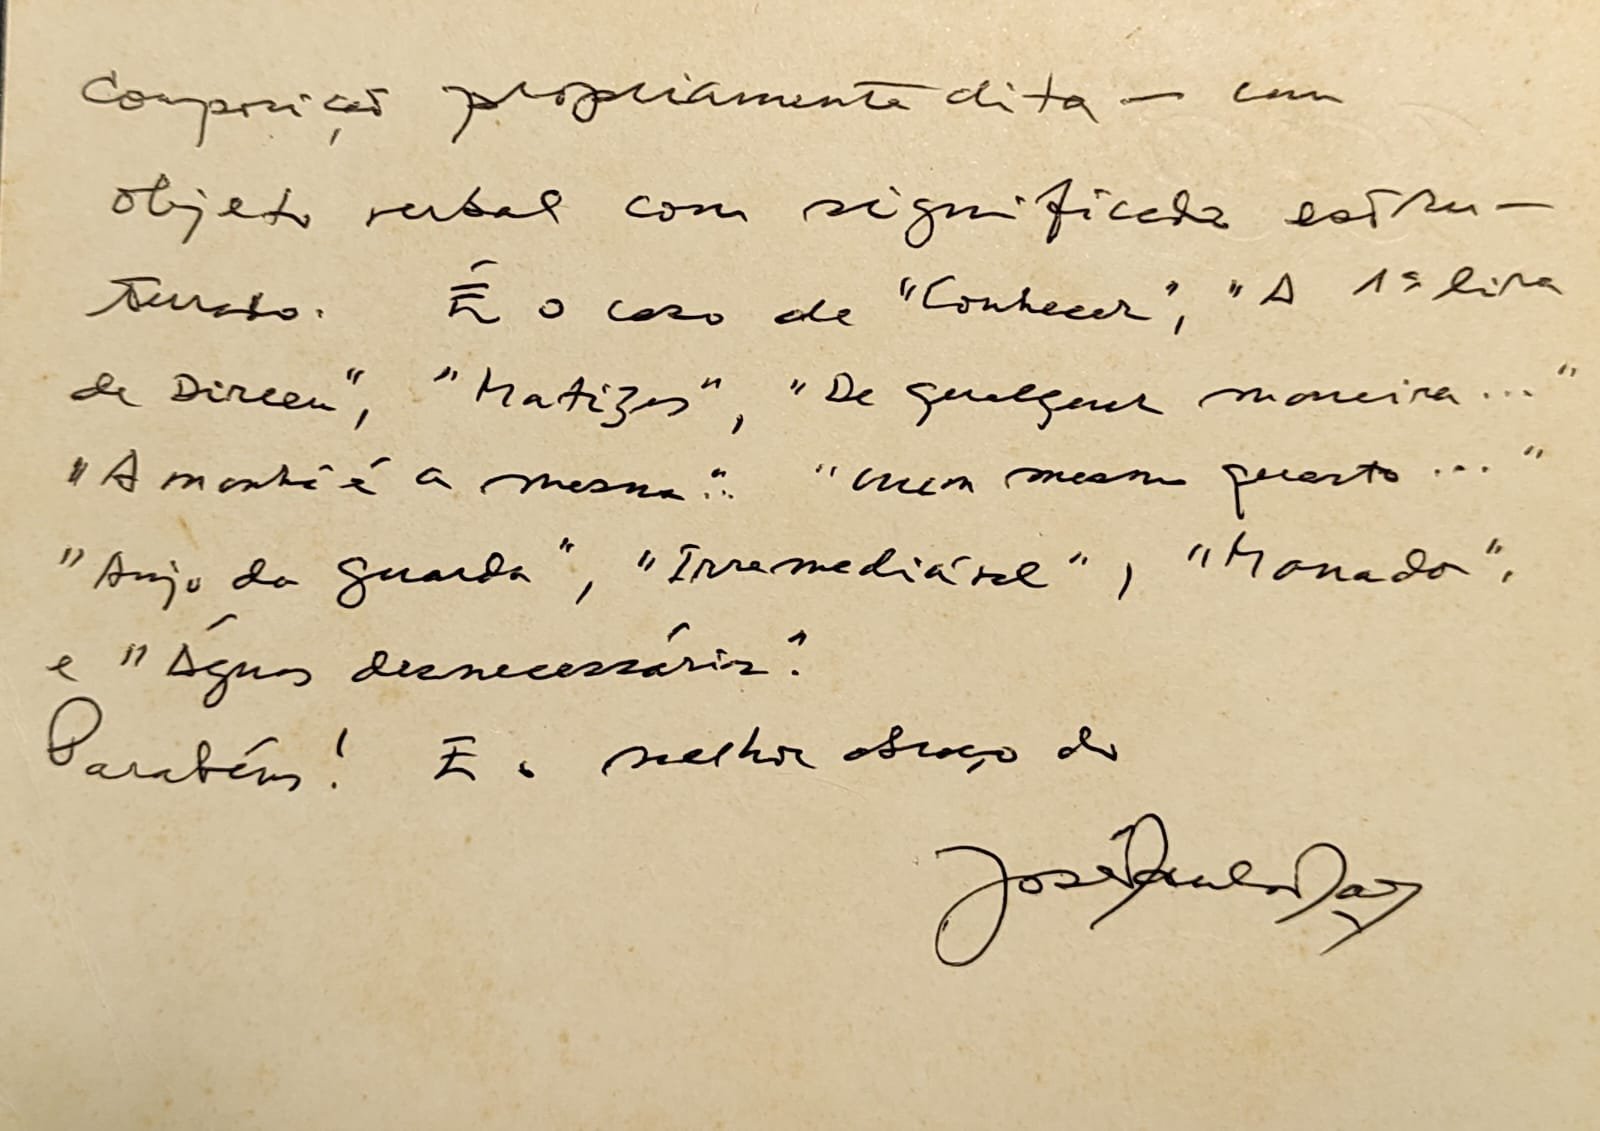 Composição propriamente dita – um
objeto verbal com significado estru-
turado. É o caso de "Conhecer", "A 1ª lira
de Dirceu", "Matizes", "De qualquer maneira..."
"A manhã é a mesma..." "num mesmo quarto..."
"Anjo da guarda", "Irremediável", "Monada",
e "Águas desnecessárias".
Parabéns! E o melhor abraço do
José Paulo Paes